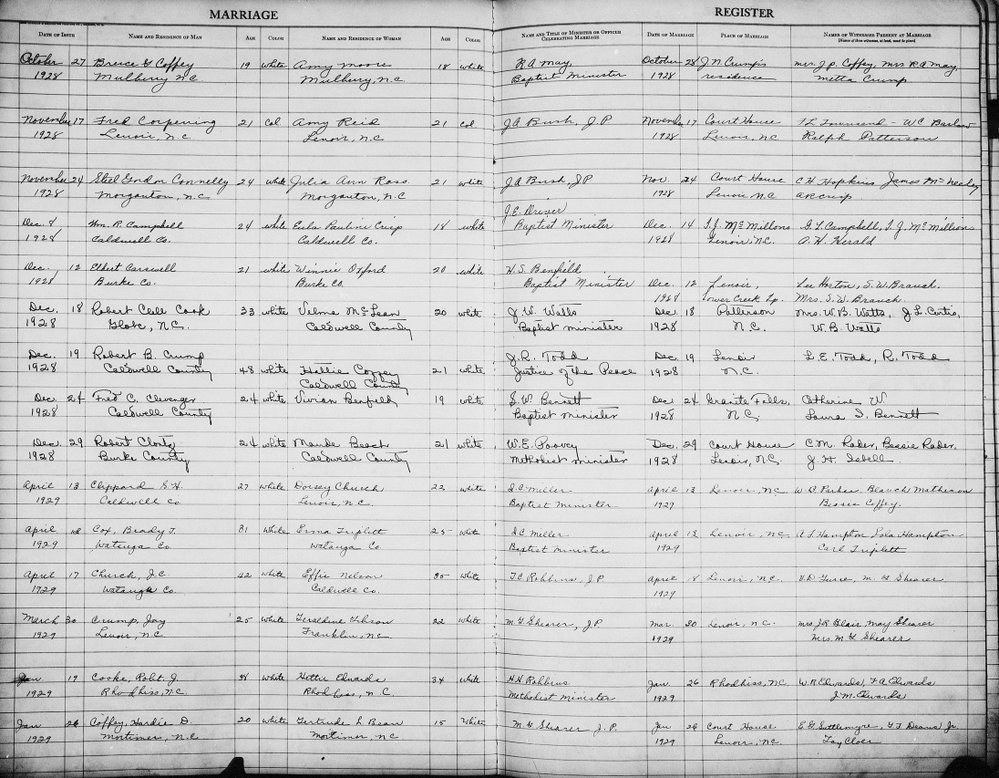 MARRIAGE
REGISTER
Date of Issue Name and Residence of Man Age Color Name and Residence of Woman Age Color Name and Title of Minister or Officer Celebrating Marriage Date of Marriage Place of Marriage Names of Witnesses Present at Marriage
October 27 Bruce G Coffey 19 white Amy Moore 18 white R.A. May, October 28 J N Crump's Mrs. J.P. Coffey, Mrs R A May,
1928 Mulberry N.C. Mulberry, N.C Baptist Minister 1928 residence Metta Crump
November 17 Fred Corpening 21 Col Amy Reid 21 Col J A Bush, J.P November 17 Court House T L Townsend - W C Barlow
1928 Lenoir, N.C. Lenoir, N.C. 1928 Lenoir, N.C Ralph Patterson
November 24 Gordon Connelly 24 white Julia Ann Ross 21 white J A Bush, J P Nov. 24 Court House C H Hopkins James
1928 Morganton, N.C. Morganton, N.C. 1928 Lenoir N.C
J.E. Driver
Dec. 8 Wm. R. Campbell 24 white Eula Pauline Crisp 18 white Baptist Minister Dec. 14 T.J. McMillons G.L. Campbell, T.J. McMillions
1928 Caldwell Co. Caldwell Co. 1928 Lenoir, N.C. A.H. Herald
Dec. 12 Elbert Carswell 21 white Winnie Oxford 20 white H.S. Benfield
1928 Burke Co. Burke Co. Baptist Minister Dec. 12 Lenoir, Lee Horton, S.W. Branch.
1928 Lower Creek Tp. Mrs. S.W. Branch
Dec. 18 Robert Cook 33 white Velma McLean 20 white J.W. Watts Dec. 18 Patterson Mrs. W.B. Watts, J.L. Curtis,
1928 Globe, N.C. Caldwell County Baptist minister 1928 N.C. W.B. Watts
Dec. 19 Robert B. Crump J.R. Todd Dec. 19 Lenoir L.E. Todd, R. Todd
1928 Caldwell County 48 white Hallie Coffey 21 white Justice of the Peace 1928 N.C.
Caldwell County
Dec 24 Fred C. Clevenger 24 white Vivian Benfield 19 white S.W. Bennett Dec 24 Granite Falls, Catherine W
1928 Caldwell County Baptist minister 1928 N.C. Laura I. Bennett
Dec. 29 Robert Clontz 24 white Maude Beach 21 white W.E. Poovey Dec. 29 Court House C.M. Rader, Bessie Rader,
1928 Burke County Caldwell County Methodist minister 1928 Lenoir, N.C. J.H. Isbell.
April 13 Clippard G.H. 27 white Dorsey Church 22 white I.C. Miller April 13 Lenoir, N.C W.C. Parker Blanch Matheson
1929 Caldwell Co Lenoir, N.C. Baptist Minister 1929 Bessie Coffey.
April Cox, Brady T. 31 white Erma Triplett 25 white I.C. Miller April 12 Lenoir, N.C. Hampton Isla Hampton
1929 Watauga Co. Watauga Co. Baptist Minister 1929 Carl Triplett
April 17 Church, J.C. 42 white Effie Nelson 30 white T.C. Robbins, J.P April 18 Lenoir, N.C. M. G Shearer
1929 Watauga Co. Caldwell Co. 1929
March 30 Crump, Jay 25 white Geraldine Gibson 22 white M G Shearer, J.P Mar. 30 Lenoir, N.C. Mrs J.R Blair, May Shearer
1929 Lenoir, N.C. Franklin, N.C. 1929 Mrs. M G Shearer
Jan 19 Cooke, Robt. J. white Hettie Edwards 34 white H.H Robbins Jan. 26 Rhodhiss, N.C. W.R. Edwards, F.A. Edwards
1929 Rhodhiss, N.C Rhodhiss, N.C. Methodist Minister 1929 J.M. Edwards
Jan 26 Coffey, Hardie D. 20 white Gertrude L Bean 15 White M G Shearer J.P. Jan 26 Court House E G Suttlemyre, G F Deams Jr.
1929 Mortimer, N.C Mortimer, NC 1929 Lenoir, N.C. Foy Cloer